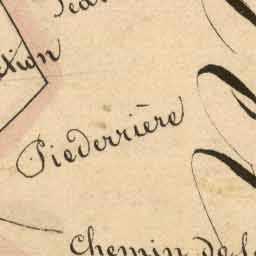 ction
Piederrière
Chemin de